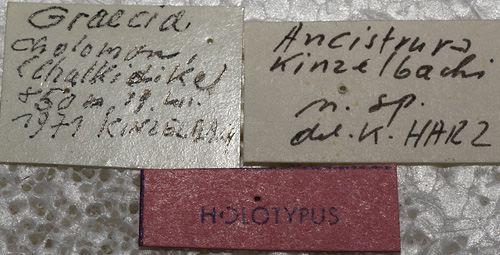 Graecia,
Cholomon,
(Chalkidike)
850 m 19.
1971 KINZELBACH
Ancistrura
Kinzelbachi
n. sp.
det. K. HARZ
HOLOTYPUS